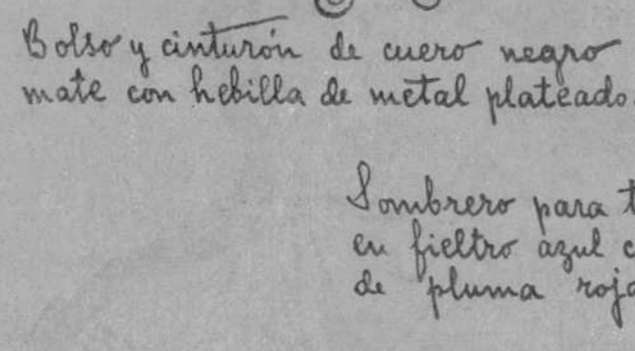 Bolso y cinturón de cuero negro
mate con hebilla de metal plateado.
Sombrero para
en fieltro azul
de pluma